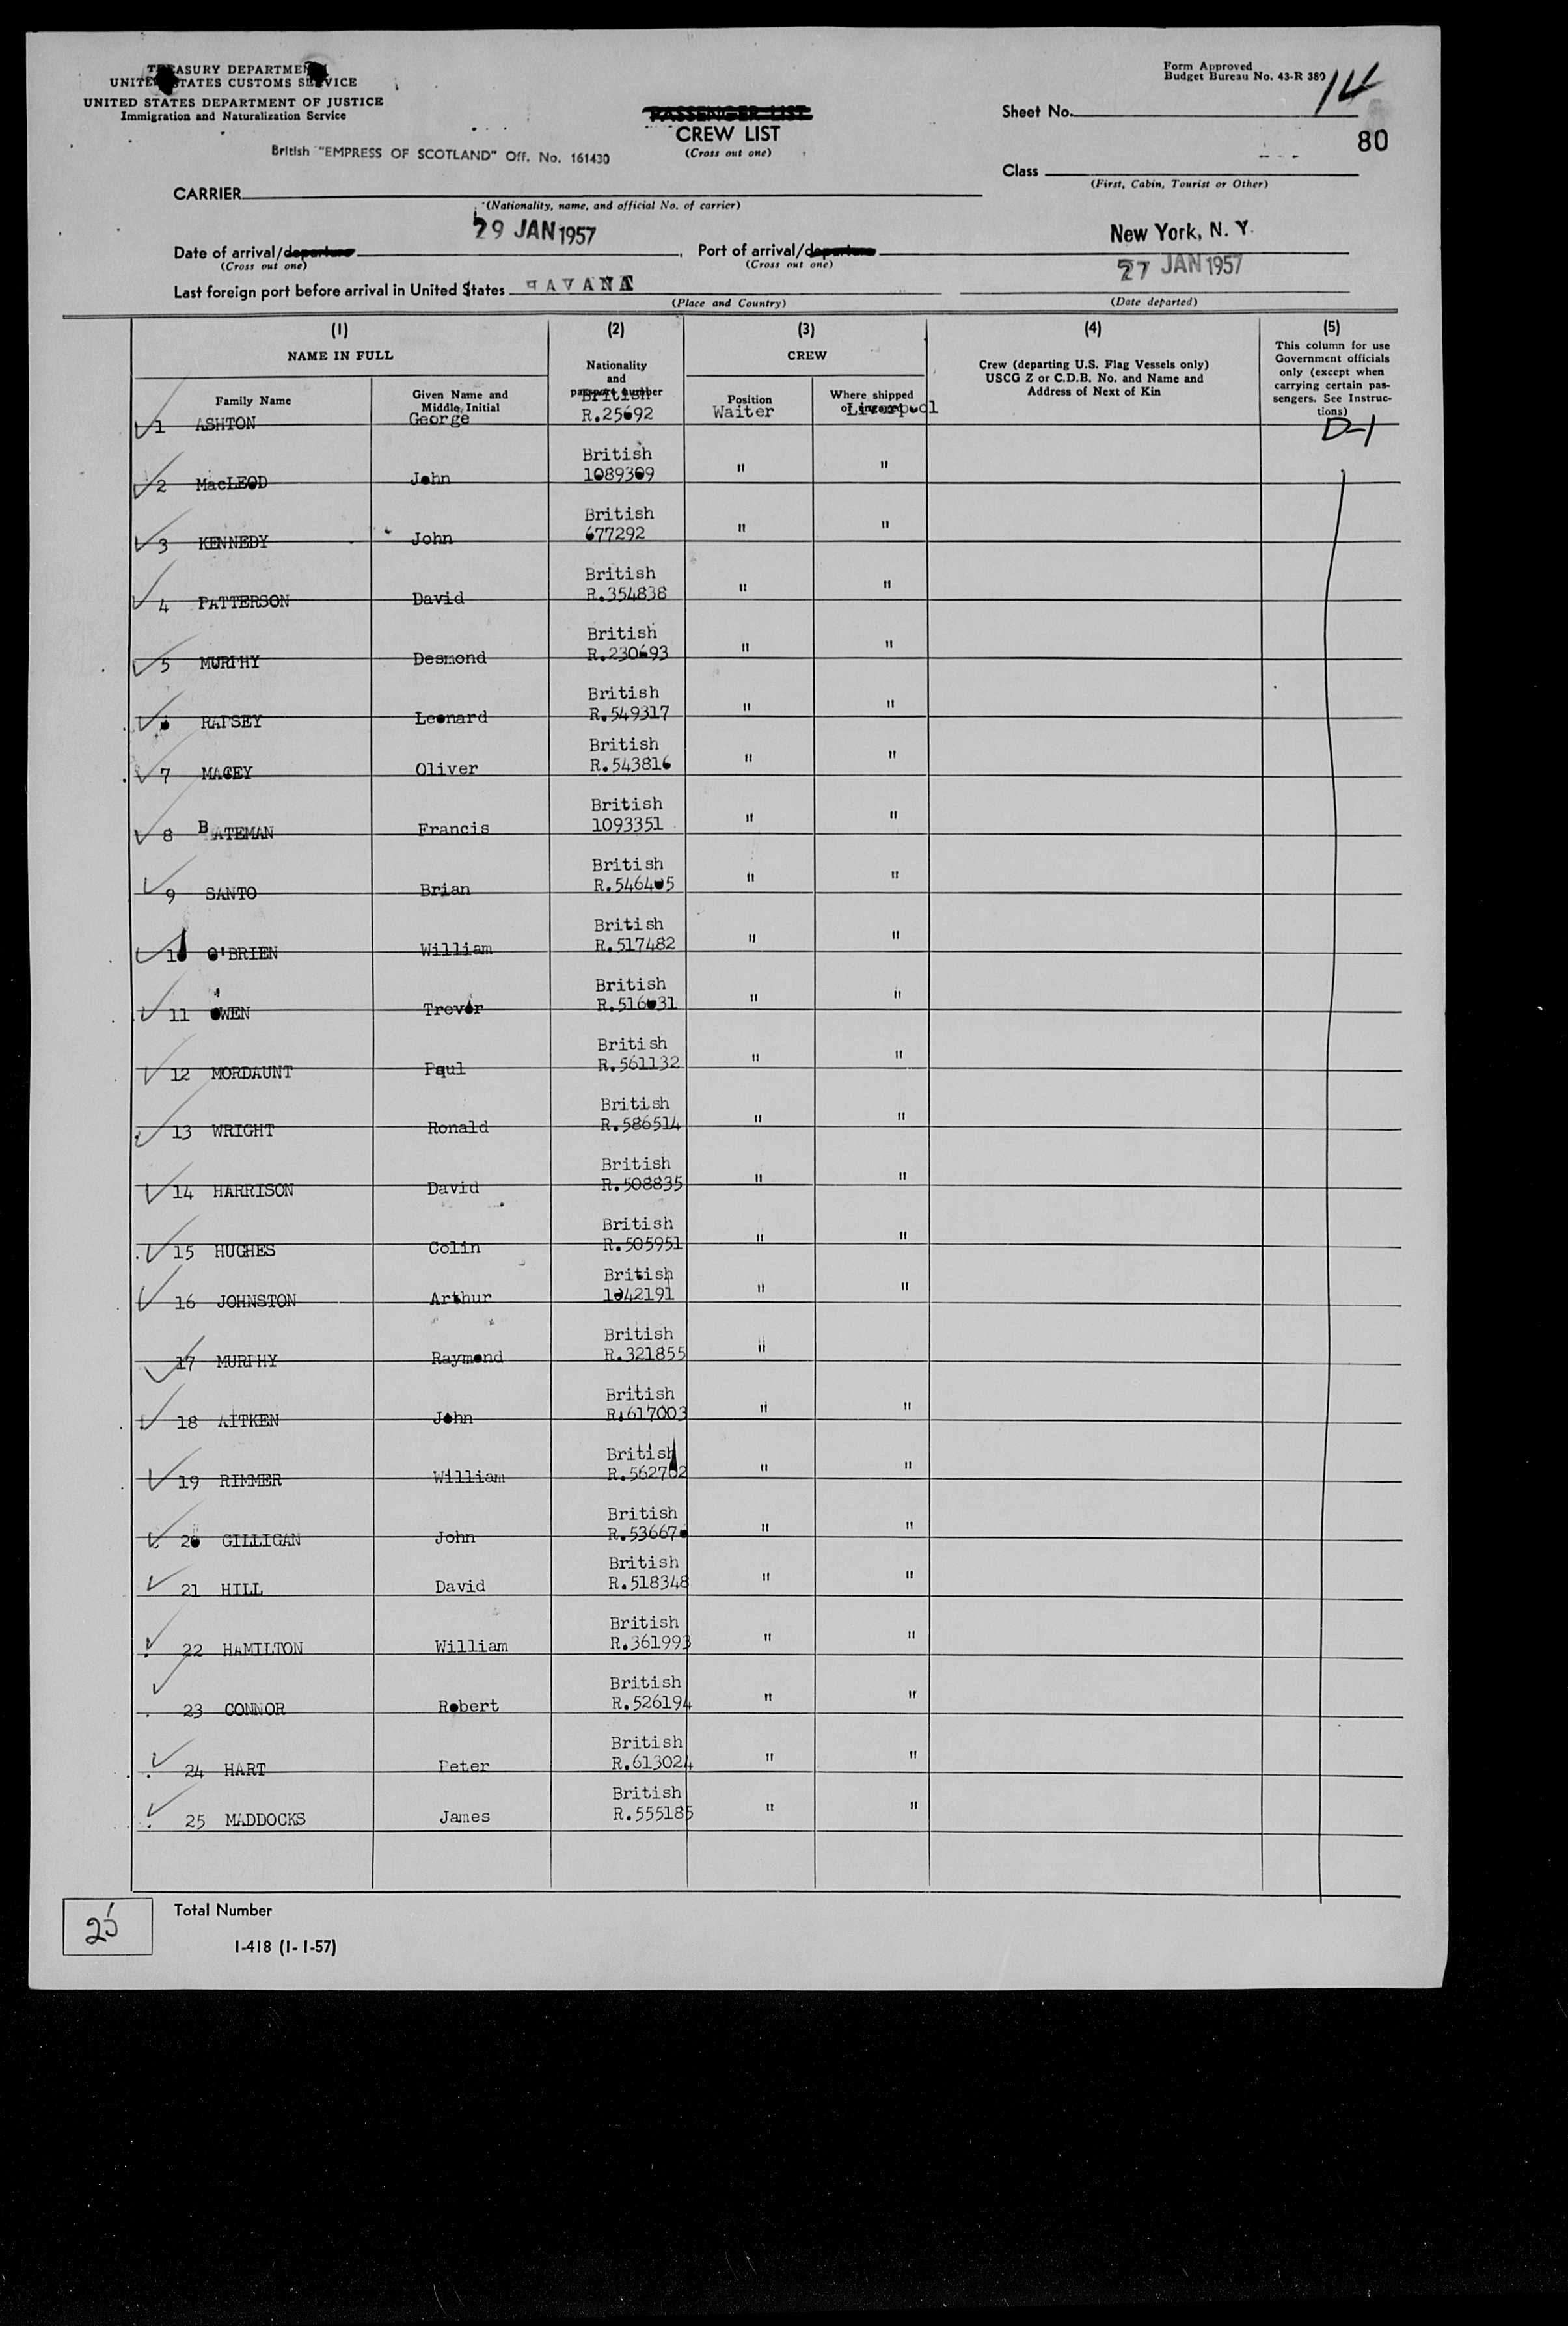 TREASURY DEPARTMENT
UNITED STATES CUSTOMS SERVICE
UNITED STATES DEPARTMENT OF JUSTICE
Immigration and Naturalization Service
Form Approved
Budget Bureau No. 43-R 380
PASSENGER LIST
CREW LIST
(Cross out one)
Sheet No. 14
80
British "EMPRESS OF SCOTLAND" Off. No. 161430
Class
(First, Cabin, Tourist or Other)
CARRIER
(Nationality, name, and official No. of carrier)
Date of arrival/departure 29 JAN 1957, Port of arrival/departure New York, N. Y.
(Cross out one) (Cross out one)
27 JAN 1957
Last foreign port before arrival in United States HAVANA
(Place and Country) (Date departed)
(1) (2) (3) (4) (5)
NAME IN FULL
Family Name
Given Name and Middle Initial
Nationality and passport number
CREW
Position
Where shipped or engaged
Crew (departing U.S. Flag Vessels only)
USCG Z or C.D.B. No. and Name and
Address of Next of Kin
This column for use
Government officials
only (except when
carrying certain pas-
sengers. See Instruc-
tions)
1 ASHTON George British R.25692 Waiter Liverpool D-1
2 MacLEOD John British 1089309 " "
3 KENNEDY John British 677292 " "
4 PATTERSON David British R.354838 " "
5 MURPHY Desmond British R.230693 " "
6 RAPSEY Leonard British R.549317 " "
7 MACEY Oliver British R.543816 " "
8 BATEMAN Francis British 1093351 " "
9 SANTO Brian British R.546405 " "
10 O'BRIEN William British R.517482 " "
11 OWEN Trevor British R.516031 " "
12 MORDAUNT Paul British R.561132 " "
13 WRIGHT Ronald British R.586514 " "
14 HARRISON David British R.508835 " "
15 HUGHES Colin British R.505951 " "
16 JOHNSTON Arthur British 1042191 " "
17 MURPHY Raymond British R.321855 "
18 AITKEN John British R.617003 " "
19 RIMMER William British R.562702 " "
20 GILLIGAN John British R.536670 " "
21 HILL David British R.518348 " "
22 HAMILTON William British R.361993 " "
23 CONNOR Robert British R.526194 " "
24 HART Peter British R.613024 " "
25 MADDOCKS James British R.555185 " "
25 Total Number
I-418 (1-1-57)